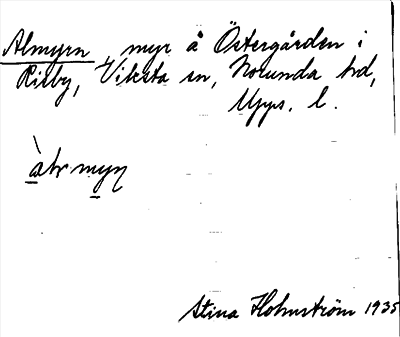 Almyrn, myr å Östergården i
Risby, Viksta sn, Norunda hd,
Upps. l.
Stina Holmström 1935